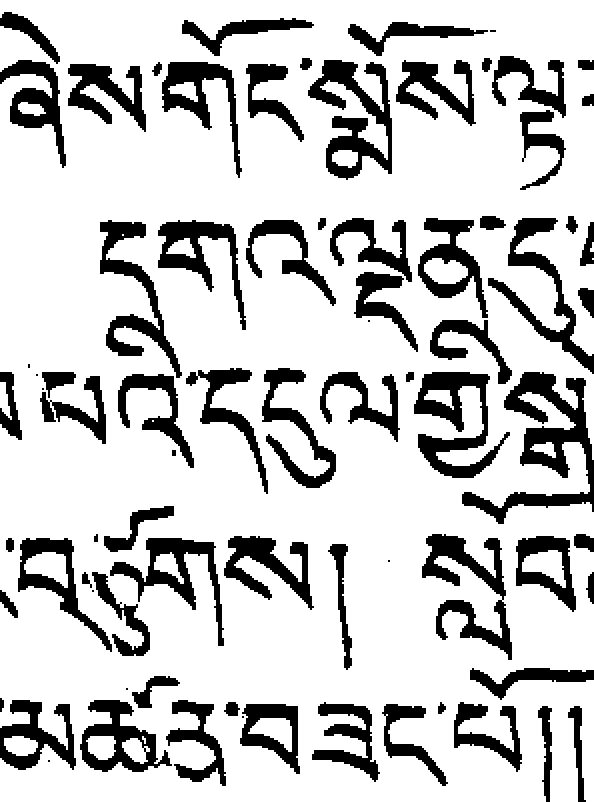 ཞེས་གོང་སྨོས་ལྟ་
དགའ་ལྡན་དུ
པའི་དངུལ་གྱི་སྒ
་བཙུགས།  སློབ་
མཚན་བཟང་པོ།།